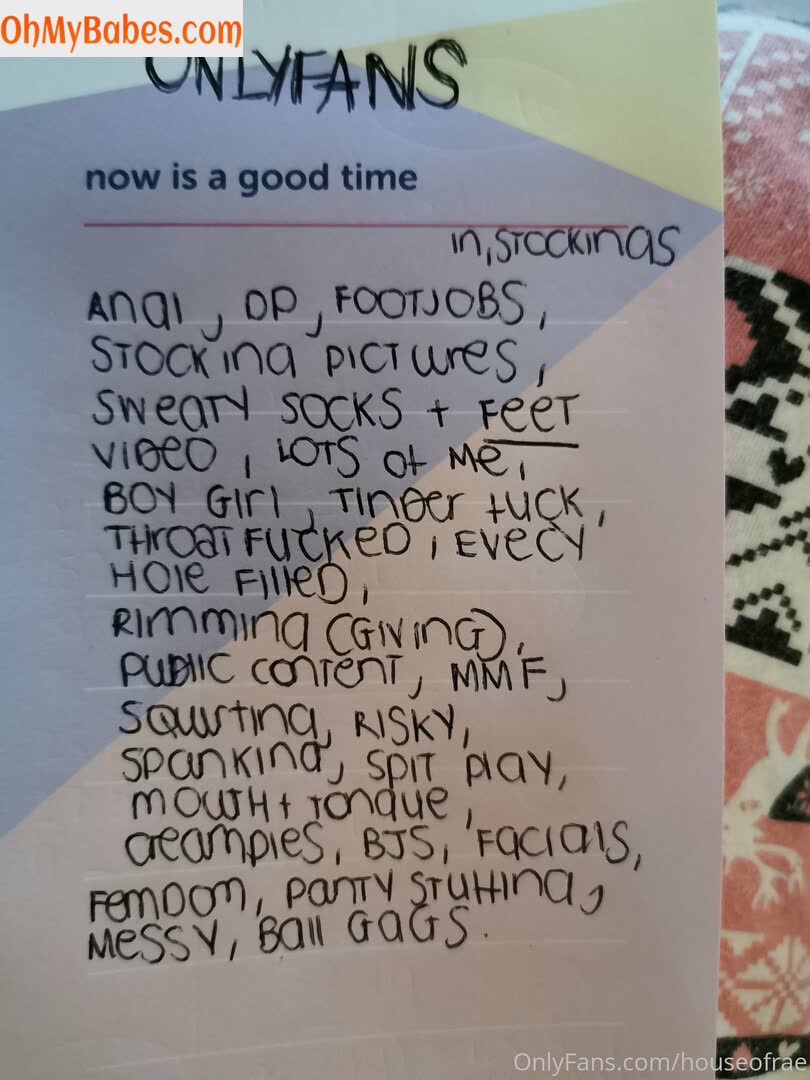 OhMyBabes.com
ONLYFANS
now is a good time
in, STOCKINGS
Anal, DP, FOOTJOBS,
STOCKING PICTURES,
SWEATY SOCKS + FEET
VIDEO, LOTS Of Me,
BOY GIrl, TINDer fuck,
THROAT FUCKED, EVERY
HOle FIlleD,
RImming (GIVING),
PUBlIC conTenT, MMF,
Squirting, RISKY,
Spanking, SPIT PlAY,
mouth + Tongue,
creampIes, BJS, FacIals,
FemDom, PANTY STUffing,
MESSY, Ball GAGS.
OnlyFans.com/houseofrae